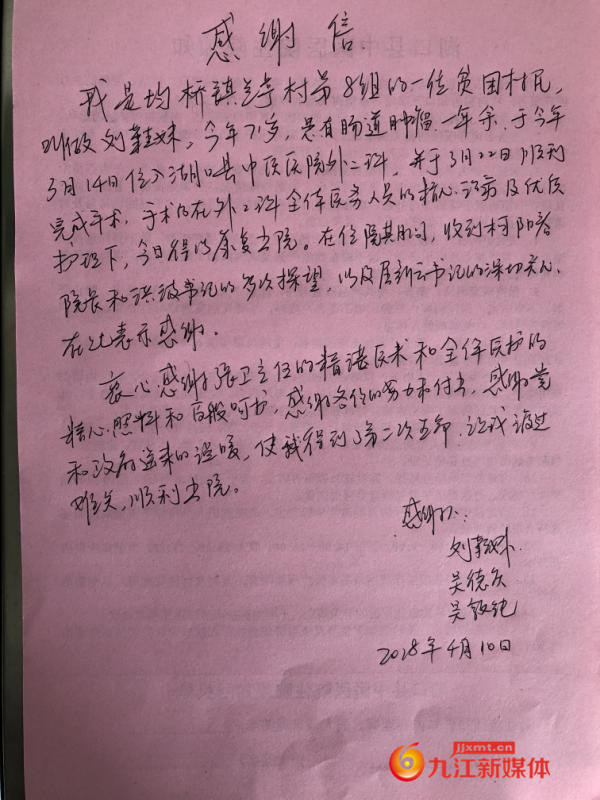 感谢信
我是均桥镇兰亭村第8组的一位贫困村民,
叫做刘毛妹,今年71岁,患有肠道肿瘤一年余,于今年
3月14日住入湖口县中医医院外二科,并于3月22日顺利
完成手术,手术后在外二科全体医务人员的精心诊病及优质
护理下,今日得以康复出院。在住院期间,收到柯阳春
院长和洪波书记的多次探望,以及屈新云书记的深切关心,
在此表示感谢。
衷心感谢张卫主任的精湛医术和全体医护的
精心照料和百般呵护,感谢各位的努力和付出,感谢党
和政府送来的温暖,使我得到了第二次生命,让我渡过
难关,顺利出院。
感谢人:
刘
吴德
吴
2018年4月10日
jjxmt.cn
九江新媒体